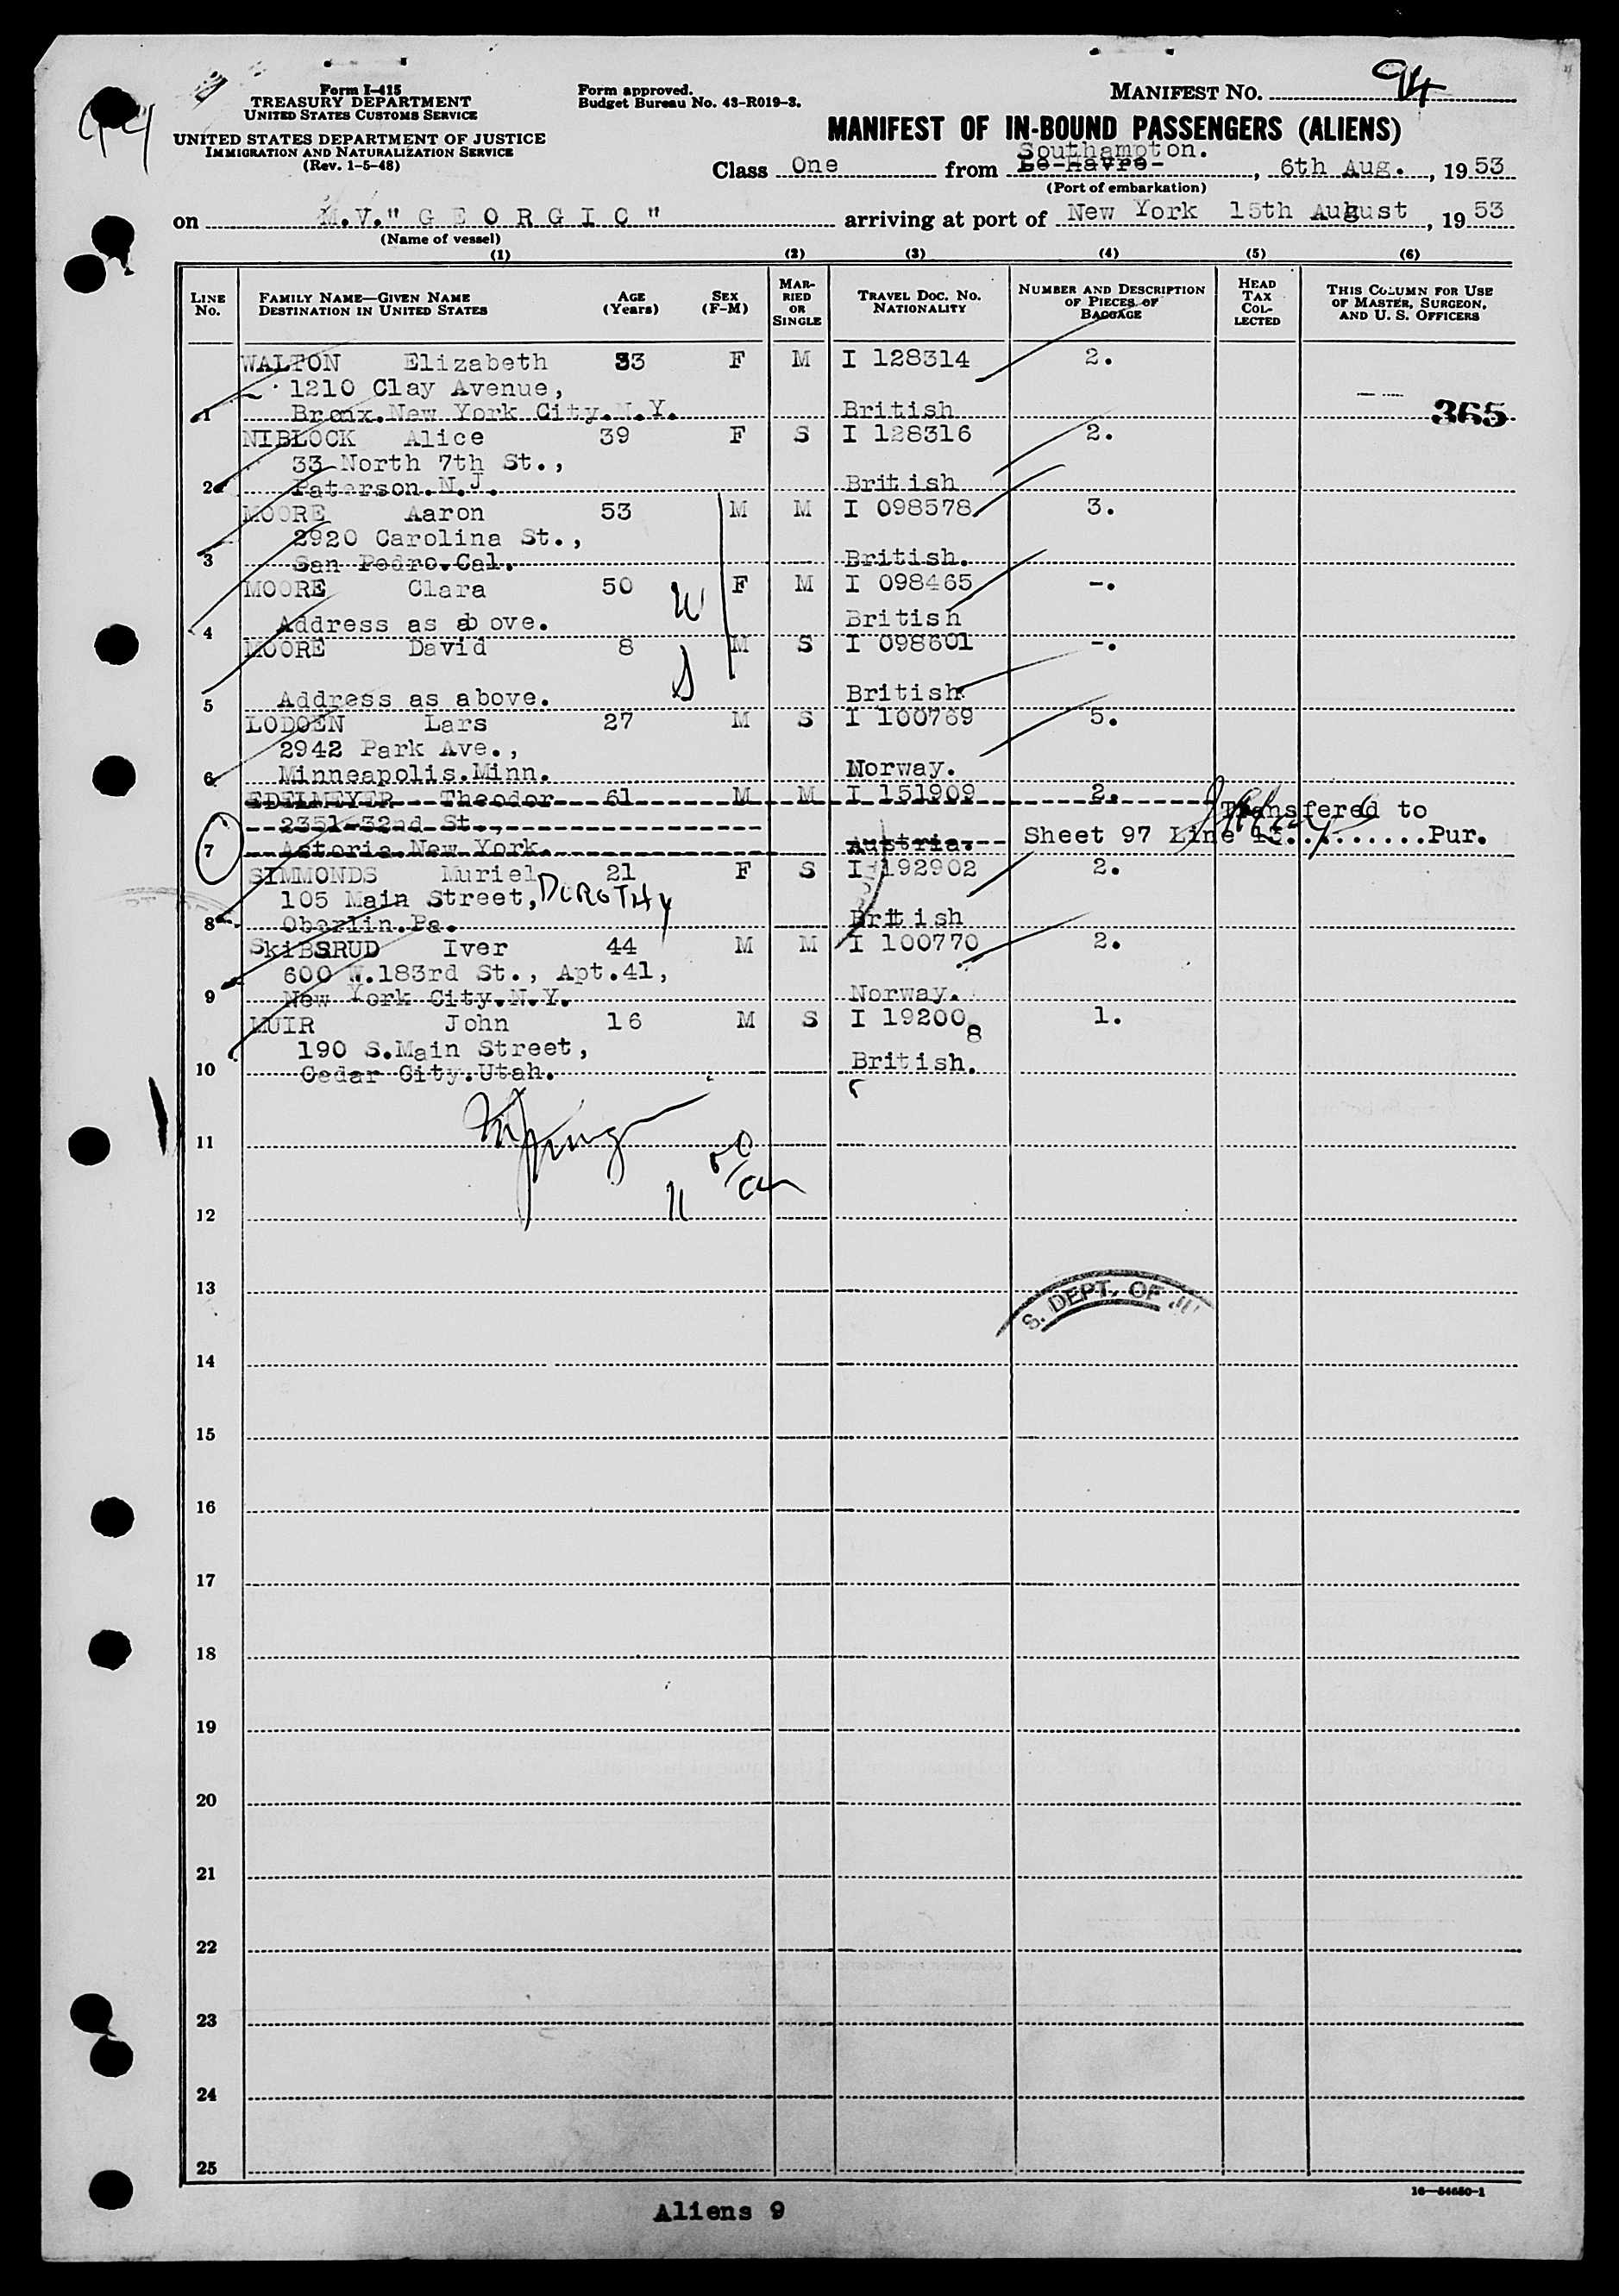 94
Form I-415
TREASURY DEPARTMENT
UNITED STATES CUSTOMS SERVICE
UNITED STATES DEPARTMENT OF JUSTICE
IMMIGRATION AND NATURALIZATION SERVICE
(Rev. 1-5-48)
Form approved.
Budget Bureau No. 43-R019-3.
MANIFEST NO. 94
MANIFEST OF IN-BOUND PASSENGERS (ALIENS)
Southampton.
Class One from Le Havre , 6th Aug. , 1953
(Port of embarkation)
on M.V." G E O R G I C " arriving at port of New York 15th August , 1953
(Name of vessel)
(1) (2) (3) (4) (5) (6)
LINE No. FAMILY NAME—GIVEN NAME DESTINATION IN UNITED STATES AGE (Years) SEX (F-M) MARRIED OR SINGLE TRAVEL DOC. NO. NATIONALITY NUMBER AND DESCRIPTION OF PIECES OF BAGGAGE HEAD TAX COLLECTED THIS COLUMN FOR USE OF MASTER, SURGEON, AND U. S. OFFICERS
WALTON Elizabeth 33 F M I 128314 2.
1210 Clay Avenue,
1 Bronx.New York City.N.Y. British 365
NIBLOCK Alice 39 F S I 128316 2.
33 North 7th St.,
2 Paterson.N.J. British
MOORE Aaron 53 M M I 098578 3.
2920 Carolina St.,
3 San Pedro.Cal. British.
MOORE Clara 50 W F M I 098465 -.
4 Address as ab ove. British
MOORE David 8 S M S I 098601 -.
5 Address as above. British
LODOEN Lars 27 M S I 100769 5.
2942 Park Ave.,
6 Minneapolis.Minn. Norway.
EDELMEYER Theodor 61 M M I 151909 2. Transfered to
2351-32nd St.,
7 Astoria.New York. Austria. Sheet 97 Line 13..........Pur.
SIMMONDS Muriel 21 F S I 192902 2.
105 Main Street, DOROTHY
8 Oberlin.Pa. British
SkiBSRUD Iver 44 M M I 100770 2.
600 W.183rd St., Apt.41,
9 New York City.N.Y. Norway.
MUIR John 16 M S I 192008 1.
190 S.Main Street,
10 Cedar City.Utah. British.
11
12
13
S. DEPT. OF JU
14
15
16
17
18
19
20
21
22
23
24
25
16—54650-1
Aliens 9